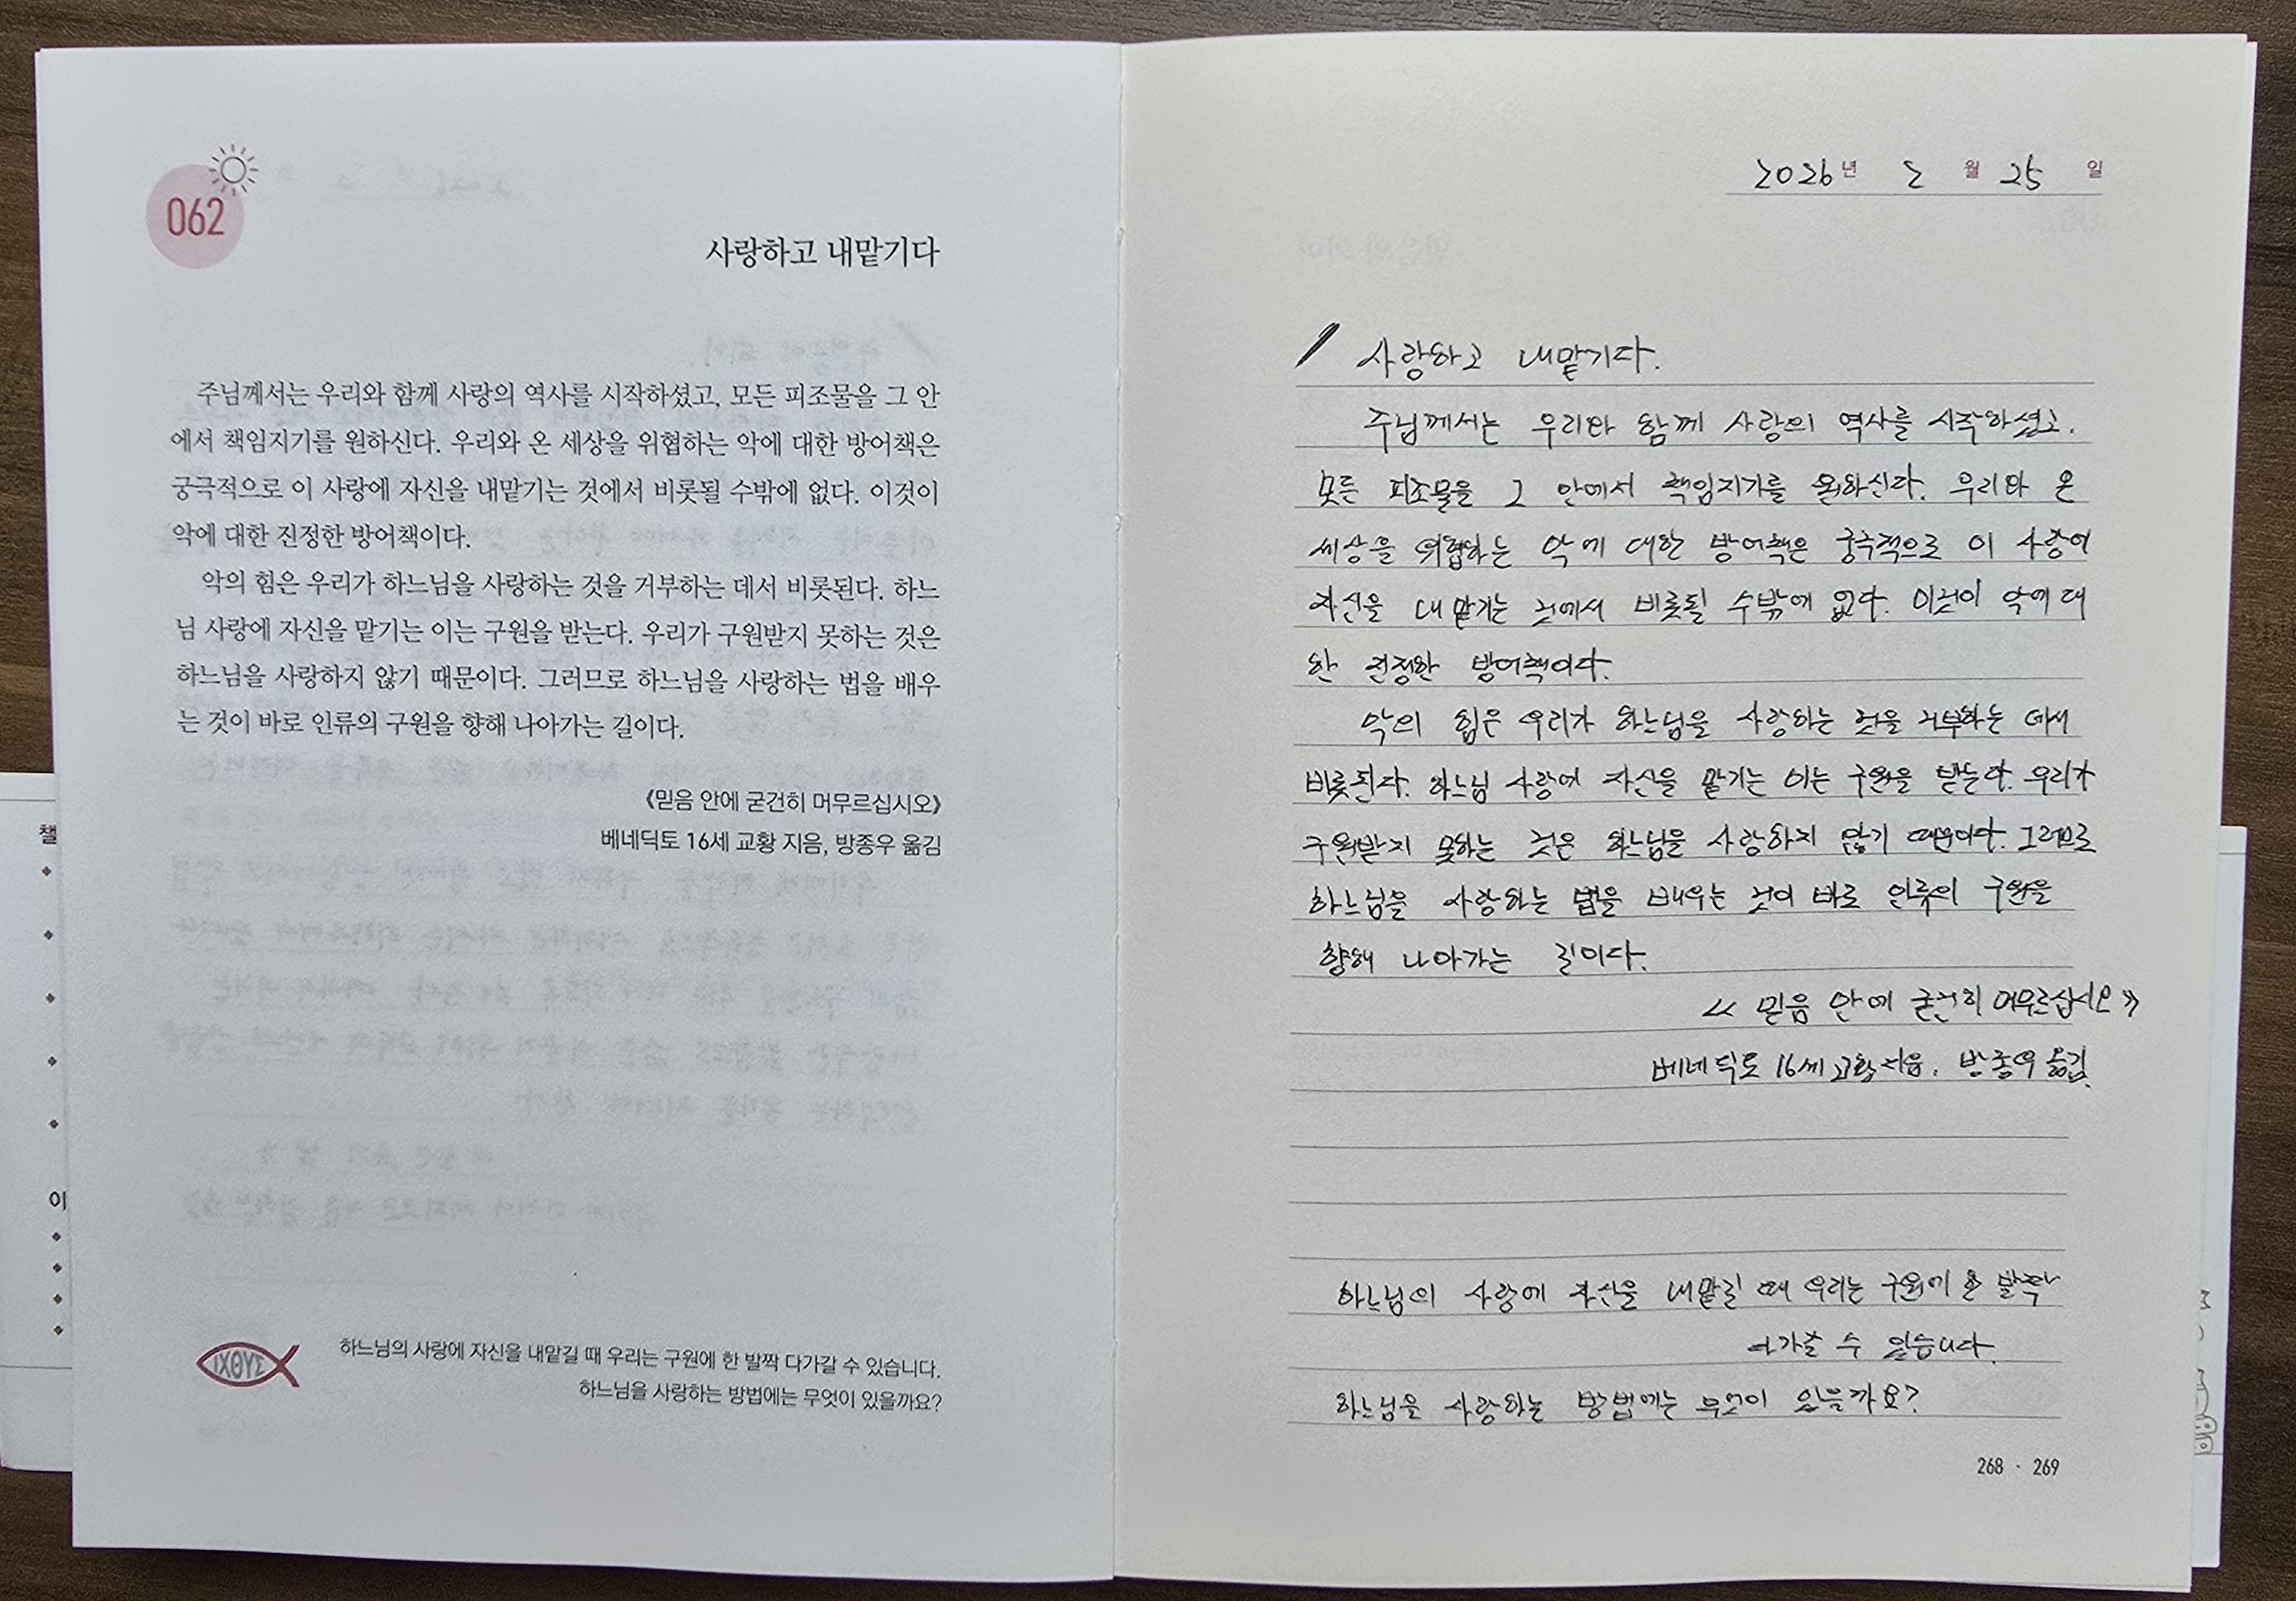 062
사랑하고 내맡기다
주님께서는 우리와 함께 사랑의 역사를 시작하셨고, 모든 피조물을 그 안
에서 책임지기를 원하신다. 우리와 온 세상을 위협하는 악에 대한 방어책은
궁극적으로 이 사랑에 자신을 내맡기는 것에서 비롯될 수밖에 없다. 이것이
악에 대한 진정한 방어책이다.
악의 힘은 우리가 하느님을 사랑하는 것을 거부하는 데서 비롯된다. 하느
님 사랑에 자신을 맡기는 이는 구원을 받는다. 우리가 구원받지 못하는 것은
하느님을 사랑하지 않기 때문이다. 그러므로 하느님을 사랑하는 법을 배우
는 것이 바로 인류의 구원을 향해 나아가는 길이다.
《믿음 안에 굳건히 머무르십시오》
베네딕토 16세 교황 지음, 방종우 옮김
ΙΧΘΥΣ
하느님의 사랑에 자신을 내맡길 때 우리는 구원에 한 발짝 다가갈 수 있습니다.
하느님을 사랑하는 방법에는 무엇이 있을까요?
챌
이
2026년 2월 25일
사랑하고 내맡기다.
주님께서는 우리와 함께 사랑의 역사를 시작하셨고,
모든 피조물을 그 안에서 책임지기를 원하신다. 우리와 온
세상을 위협하는 악에 대한 방어책은 궁극적으로 이 사랑에
자신을 내맡기는 것에서 비롯될 수밖에 없다. 이것이 악에 대
한 진정한 방어책이다.
악의 힘은 우리가 하느님을 사랑하는 것을 거부하는 데서
비롯된다. 하느님 사랑에 자신을 맡기는 이는 구원을 받는다. 우리가
구원받지 못하는 것은 하느님을 사랑하지 않기 때문이다. 그러므로
하느님을 사랑하는 법을 배우는 것이 바로 인류의 구원을
향해 나아가는 길이다.
《 믿음 안에 굳건히 머무르십시오 》
베네딕토 16세 교황 지음, 방종우 옮김.
하느님의 사랑에 자신을 내맡길 때 우리는 구원에 한 발짝
다가갈 수 있습니다.
하느님을 사랑하는 방법에는 무엇이 있을까요?
268 · 269